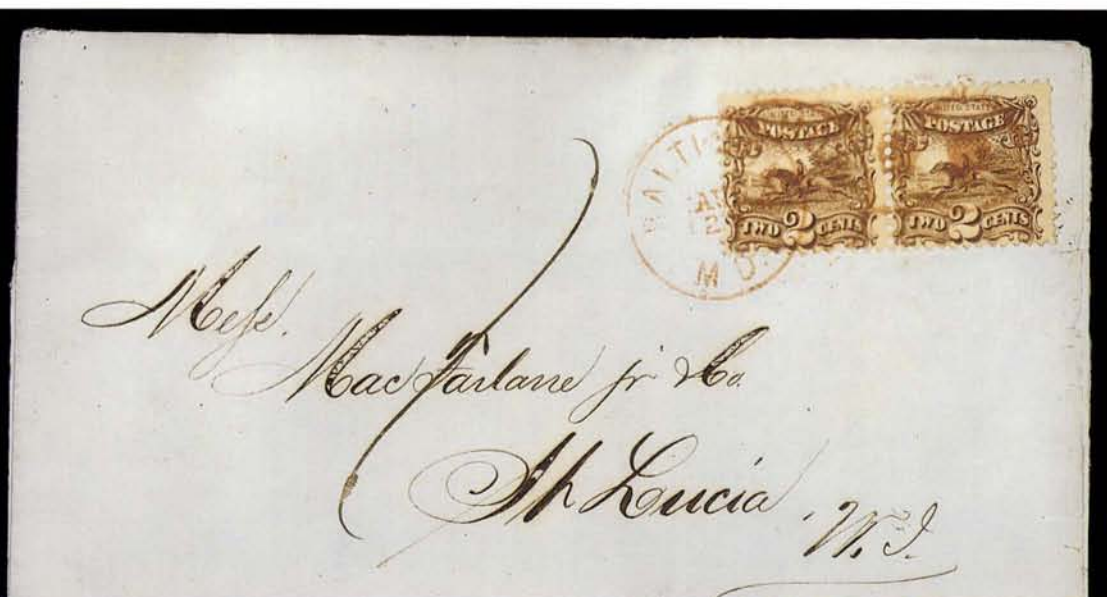 UNITED STATES
POSTAGE
TWO 2 CENTS
UNITED STATES
POSTAGE
TWO 2 CENTS
MD.
Mess.
MacFarlane jr & Co.
St Lucia, W. I.